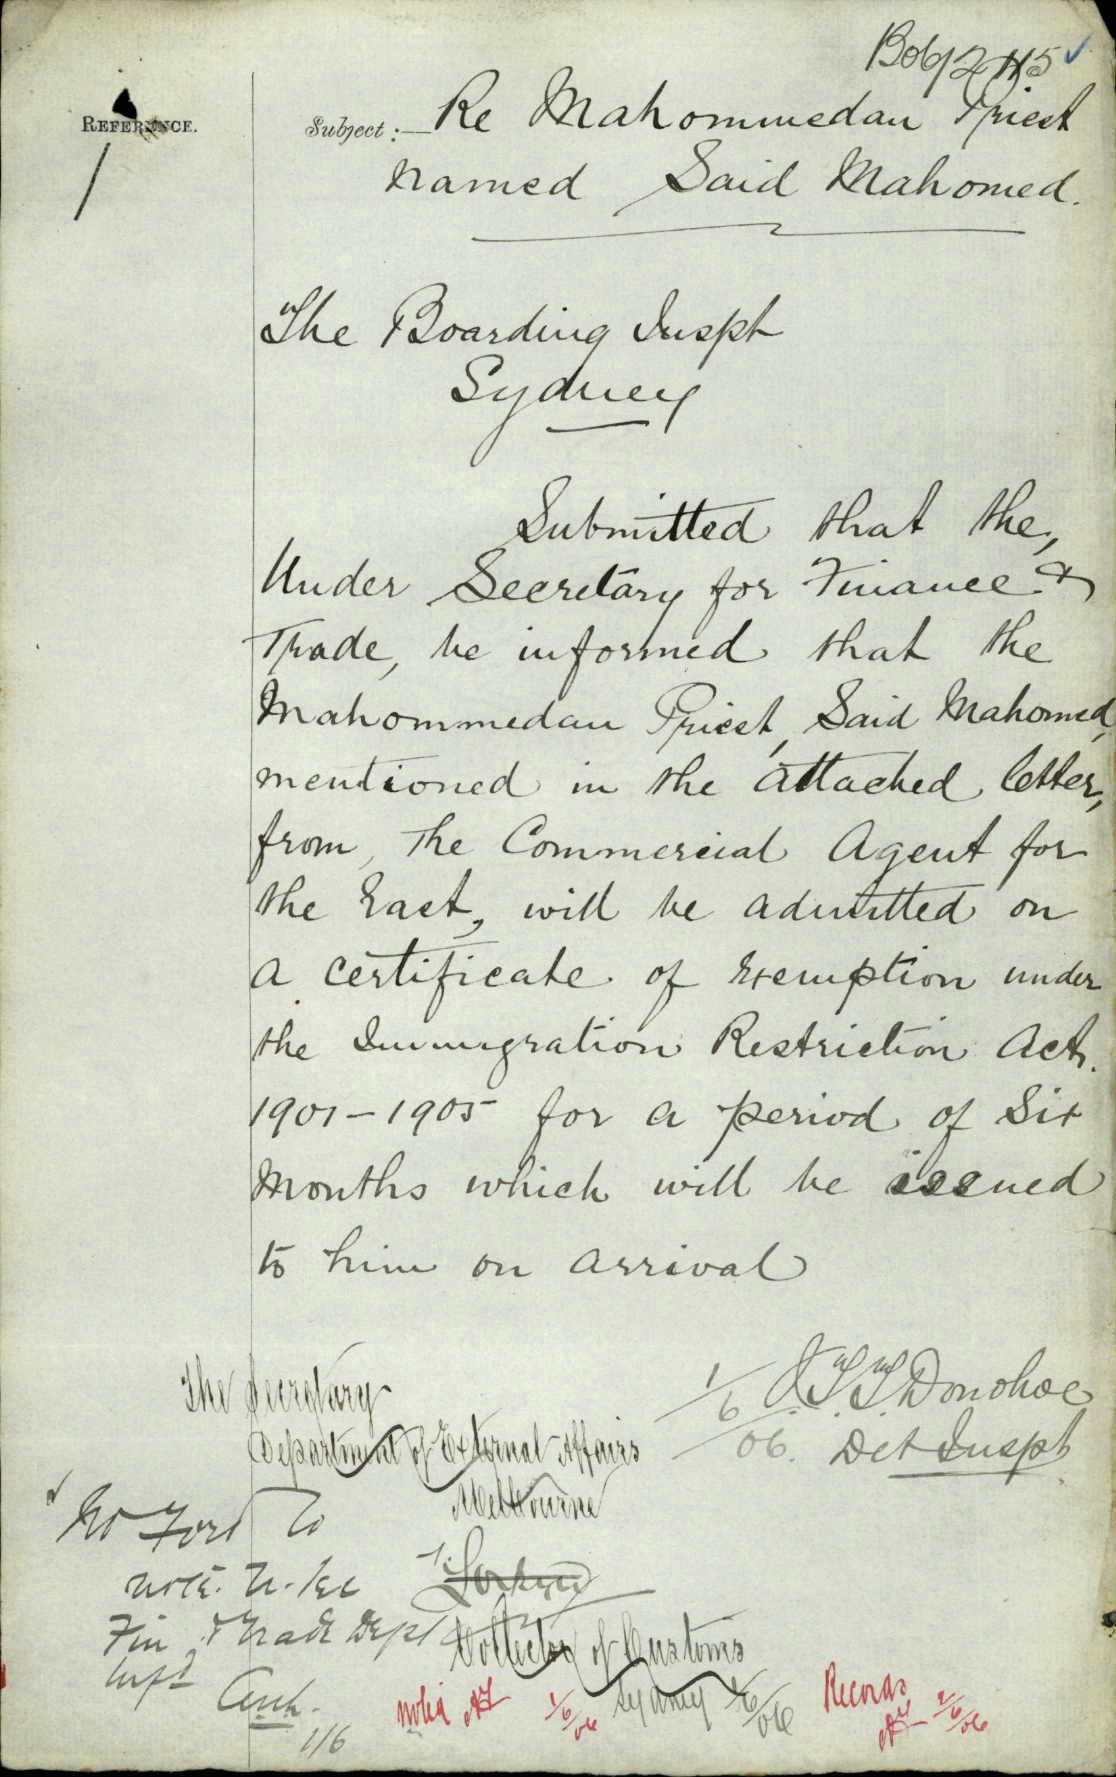 B06/2115
REFERENCE.
Subject :— Re Mahommedan Priest
named Said Mahomed.
The Boarding Inspt
Sydney
Submitted that the,
Under Secretary for Finance &
Trade, be informed that the
Mahommedan Priest, Said Mahomed,
mentioned in the attached letter,
from, The Commercial Agent for
the East, will be admitted on
a certificate of exemption under
the Immigration Restriction Acts.
1901-1905 for a period of Six
Months which will be issued
to him on arrival
1/6/06. J.T.T. Donohoe
Det Inspt
The Secretary
Department of External Affairs
Melbourne
Mr Ford to
note. & let
Fin & Trade Dept
Collector of Customs
Sydney 1/6/06
1/6
Noted 1/6/06
Records
2/6/06